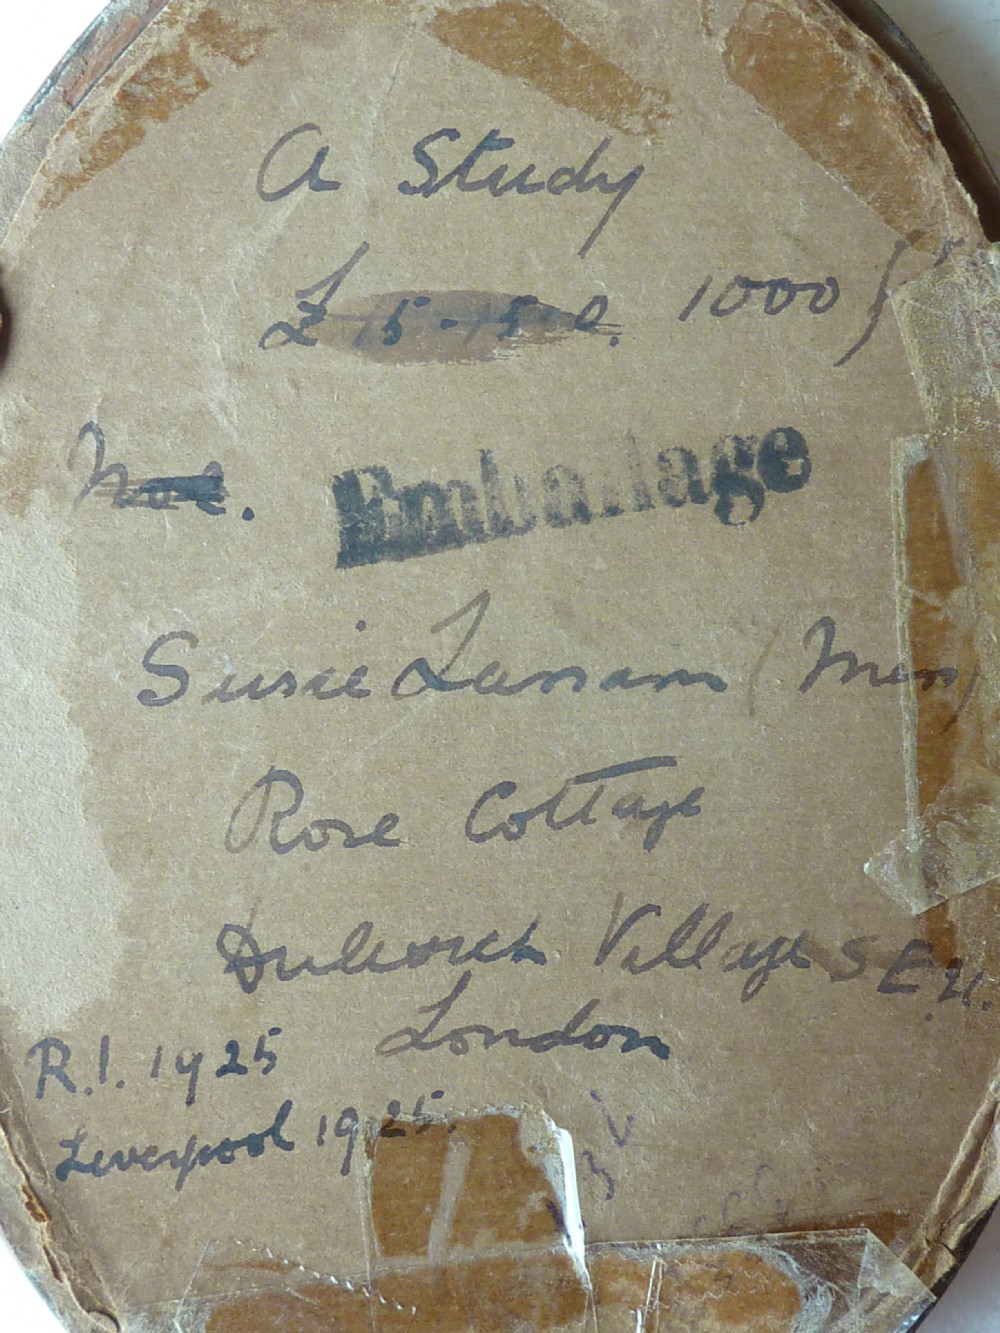 A Study
£ 15-15-0. 1000
Emballage
Susie Lansam (Mem)
Rose Cottage
Dulwich Village S E 21.
London
R.I. 1925
Liverpool 1925.